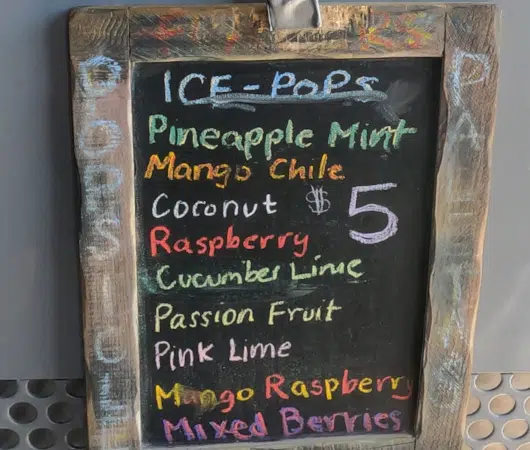 ICE-POPS
Pineapple Mint
Mango Chile
Coconut $5
Raspberry
Cucumber Lime
Passion Fruit
Pink Lime
Mango Raspberry
Mixed Berries